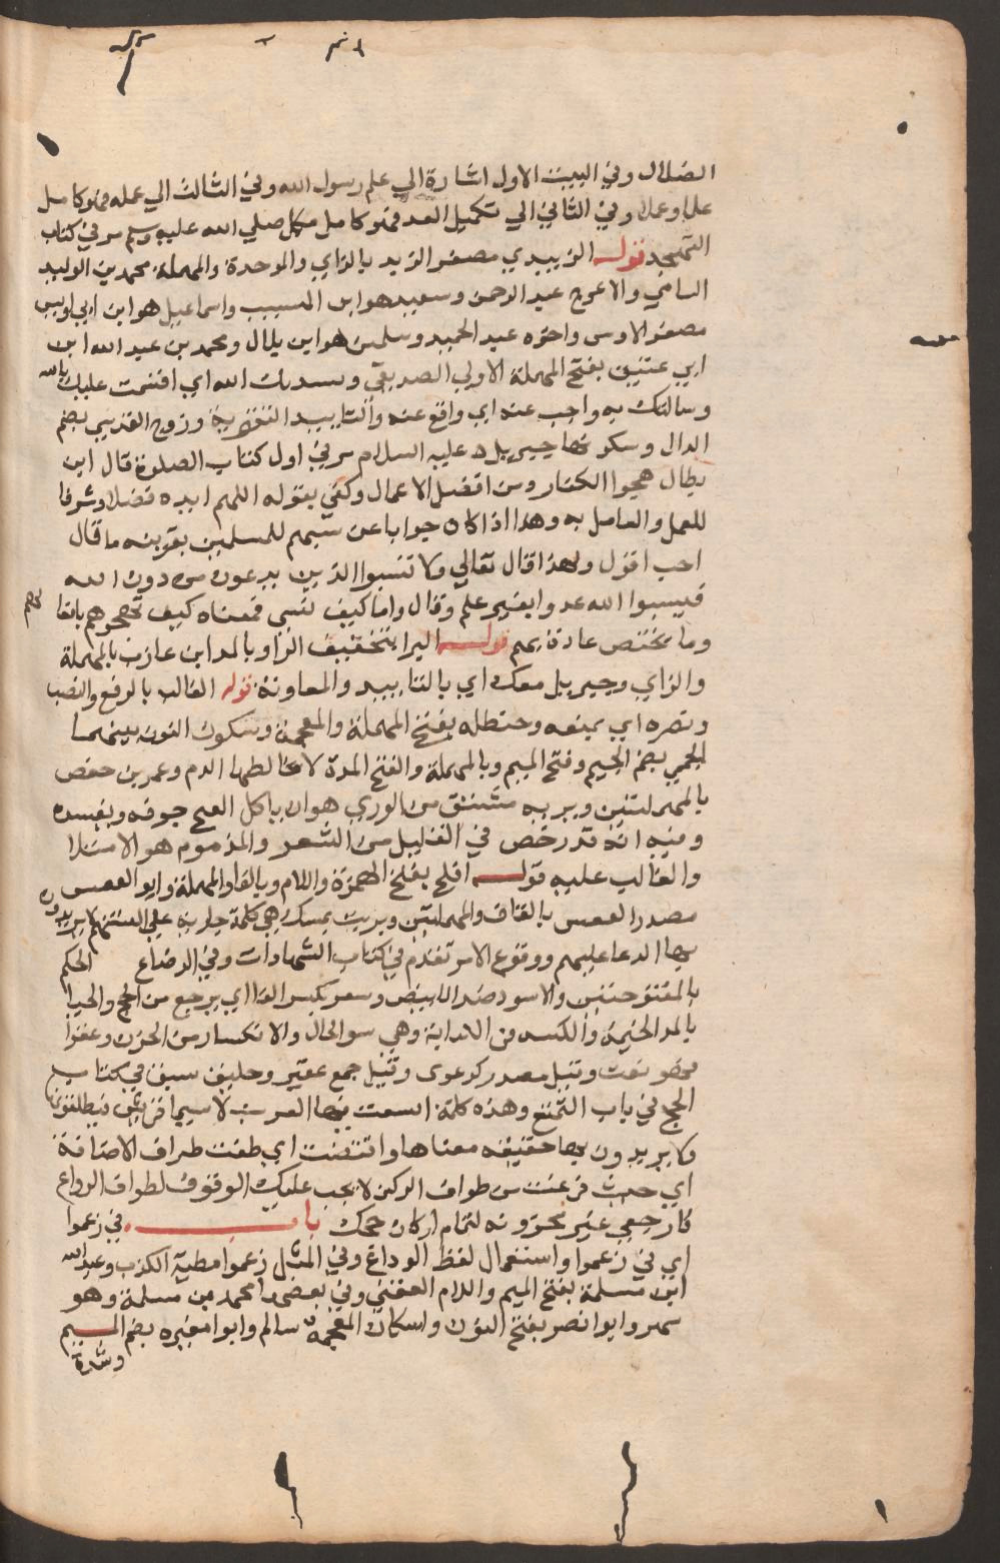 الضلال وفي البيت الاول اشارة الي علم رسول الله وفي الثالث الي عمله فهو كامل
علما وعملا وفي الثاني الي تكميل الغير فهو كامل مكمل صلي الله عليه وسلم مر في كتاب
التهجد قوله الزبيدي مصغر الزبد بالزاي والموحدة والمهملة محمد بن الوليد
السامي والاعرج عبد الرحمن وسعيد هو ابن المسيب واسماعيل هو ابن ابي اويس
مصغر الاوس واخوه عبد الحميد وسليمن هو ابن بلال ومحمد بن عبد الله ابن
ابي عتيق بفتح المهملة الاولي الصديقي ونشدتك الله اي اقسمت عليك بالله
وسالتك به واجب عنه اي دافع عنه والتاييد التقوية وروح القدس بضم
الدال وسكونها جبريل عليه السلام مر في اول كتاب الصلوة قال ابن
بطال هجوا الكفار من افضل الاعمال وكفي بقوله اللهم ايده فضلا وشرفا
للعمل والعامل به وهذا اذا كان جوابا عن سبهم للمسلمين بقرينه ما قال
اجب اقول ولهذا قال تعالي ولا تسبوا الذين يدعون من دون الله
فيسبوا الله عدوا بغير علم وقال واما كيف نسبي فمعناه كيف تهجوهم
وما يختص عادة بهم قوله البرا بتخفيف الرا وبالمد ابن عازب بالمهملة
والزاي وجبريل معك اي بالتاييد والمعاونة قوله الغالب بالرفع والنصب
ونصره اي بمنعه وحنظله بفتح المهملة والمعجمة وسكون النون بينهما
الجمحي بضم الجيم وفتح الميم وبالمهملة والقيح المدة لا يخالطها الدم وعمر بن حفص
بالمهملتين ويريه مشتق من الوري هو ان ياكل القيح جوفه ويفسده
وفيه انه قد رخص في القليل من الشعر والمذموم هو الامتلا
والغالب عليه قوله افلح بفتح الهمزة واللام وبالفا والمهملة وابو القعيس
مصغر القعس بالقاف والمهملتين وتربت يمينك هي كلمة جارية علي السنتهم لا يريدون
بها الدعا عليهم ووقوع الامر تقدم في كتاب الشهادات وفي الرضاع الحكم
بالمفتوحتين والاسود ضد الابيض وسفر بكسر الفا اي يرجع من الحج والخبا
بالمد الخيمة والكيبه من الكابة وهي سو الحال والانكسار من الحزن وعقرا
فهو نعت وقيل مصدر كدعوي وقيل جمع عقير وحليق سبق في كتاب
الحج في باب التمتع وهذه كلمة اتسعت فيها العرب لا سيما قريش فيطلقون
ولا يريدون بها حقيقه معناها وافضت اي طفت طواف الافاضة
اي حيث فرغت من طواف الركن لا يجب عليك الوقوف لطواف الوداع
فارجعي غير محزونه لتمام اركان حجك باب في زعموا
اي في زعموا واستعمال لفظ الوداع وفي المثل زعموا مطية الكذب وعبد الله
ابن مسلمة بفتح الميم واللام القعنبي وفي بعضها محمد بن مسلمة وهو
سهو وابو النصر بفتح النون واسكان المعجمة سالم وابو مغيره بضم الميم
وشدة